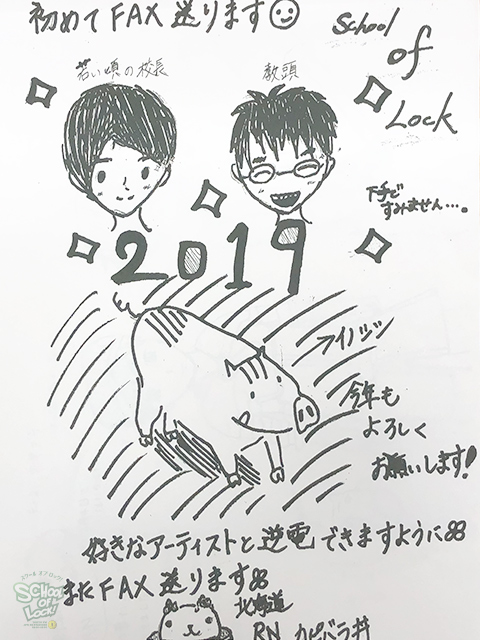 初めてFAX送ります
School
of
Lock
若い頃の校長
教頭
下手で
すみません…。
2019
イノシシ
今年も
よろしく
お願いします!
好きなアーティストと逆電できますように
またFAX送ります
北海道
RN カピバラ丼
SCHOOL
OF
LOCK!